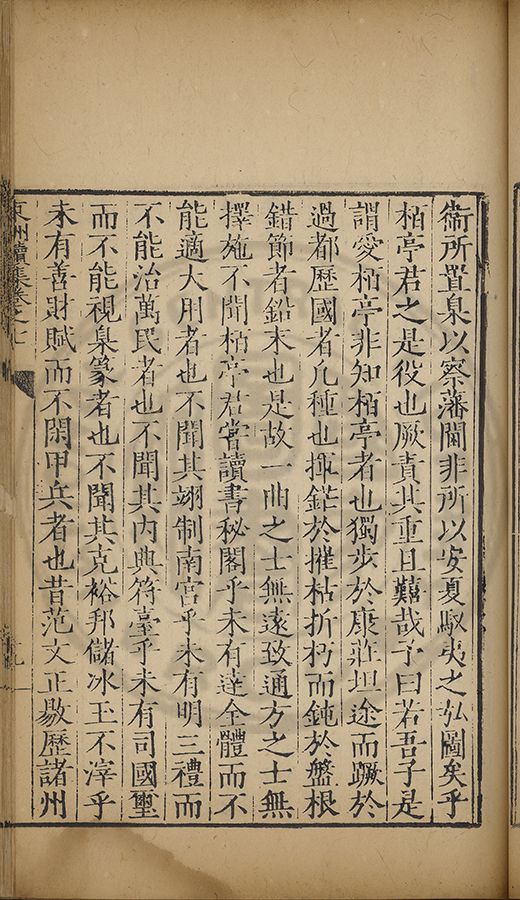 衞所置臬以察藩閫非所以安夏馭夷之弘圖矣乎
栢亭君之是役也厥責其重且艱哉予曰若吾子是
謂愛栢亭非知栢亭者也獨步於康莊坦途而蹶於
過都歷國者凡種也揮鋩於摧枯折朽而鈍於盤根
錯節者鉛末也是故一曲之士無遠致通方之士無
擇施不聞栢亭君嘗讀書秘閣乎未有達全體而不
能適大用者也不聞其翊制南宮乎未有明三禮而
不能治萬民者也不聞其內典符臺乎未有司國璽
而不能視臬篆者也不聞其克裕邦儲冰玉不滓乎
未有善財賦而不閑甲兵者也昔范文正敭歷諸州
東洲續集卷之七